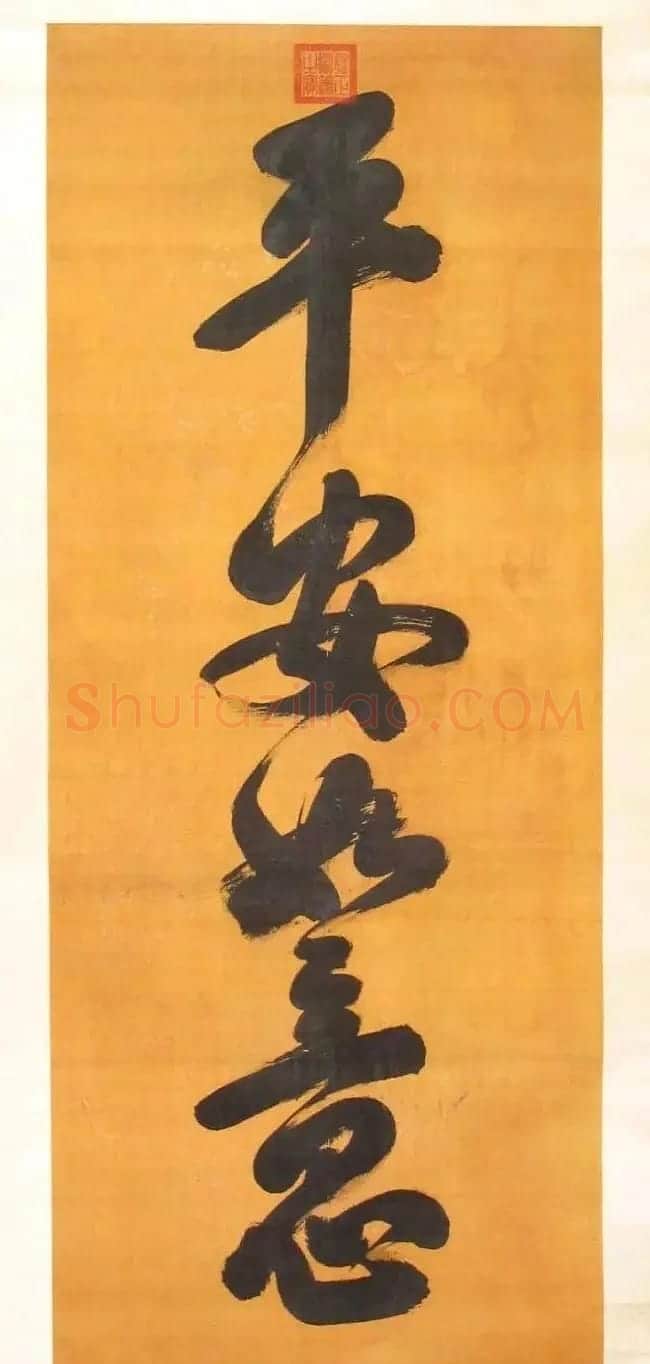 平安如意
Shufaziliao.COM